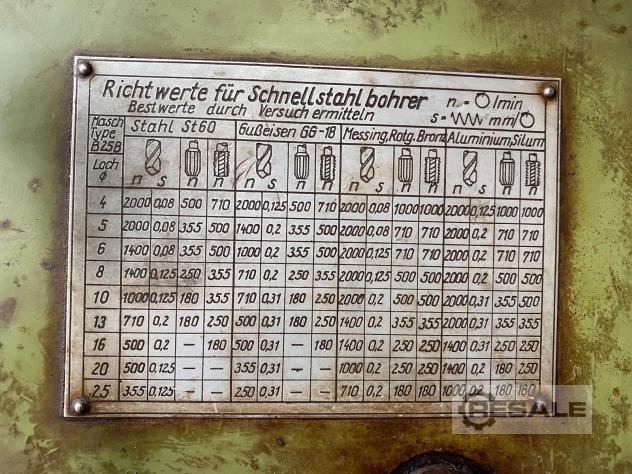 Richtwerte für Schnellstahlbohrer n = /min
Bestwerte durch Versuch ermitteln s = mm/
Masch Type B25B Stahl St60 Gußeisen GG-18 Messing, Rotg. Bronz Aluminium, Silum
Loch ø n s n n n s n n n s n n n s n n
4 2000 0,08 500 710 2000 0,125 500 710 2000 0,08 1000 1000 2000 0,125 1000 1000
5 2000 0,08 355 500 1400 0,2 355 500 2000 0,08 710 710 2000 0,2 710 710
6 1400 0,08 355 500 1000 0,2 355 500 2000 0,125 710 710 2000 0,2 710 710
8 1400 0,125 250 355 710 0,2 250 355 2000 0,125 500 500 2000 0,2 500 500
10 1000 0,125 180 355 710 0,31 180 250 2000 0,2 500 500 2000 0,31 500 500
13 710 0,2 180 250 500 0,31 180 250 1400 0,2 355 355 2000 0,31 355 355
16 500 0,2 — 180 500 0,31 — 180 1400 0,2 250 250 1400 0,31 250 250
20 500 0,125 — — 355 0,31 — — 1000 0,2 250 250 1400 0,2 250 250
25 355 0,125 — — 250 0,31 — — 710 0,2 180 180 1000 0,2 180 180
BESALE